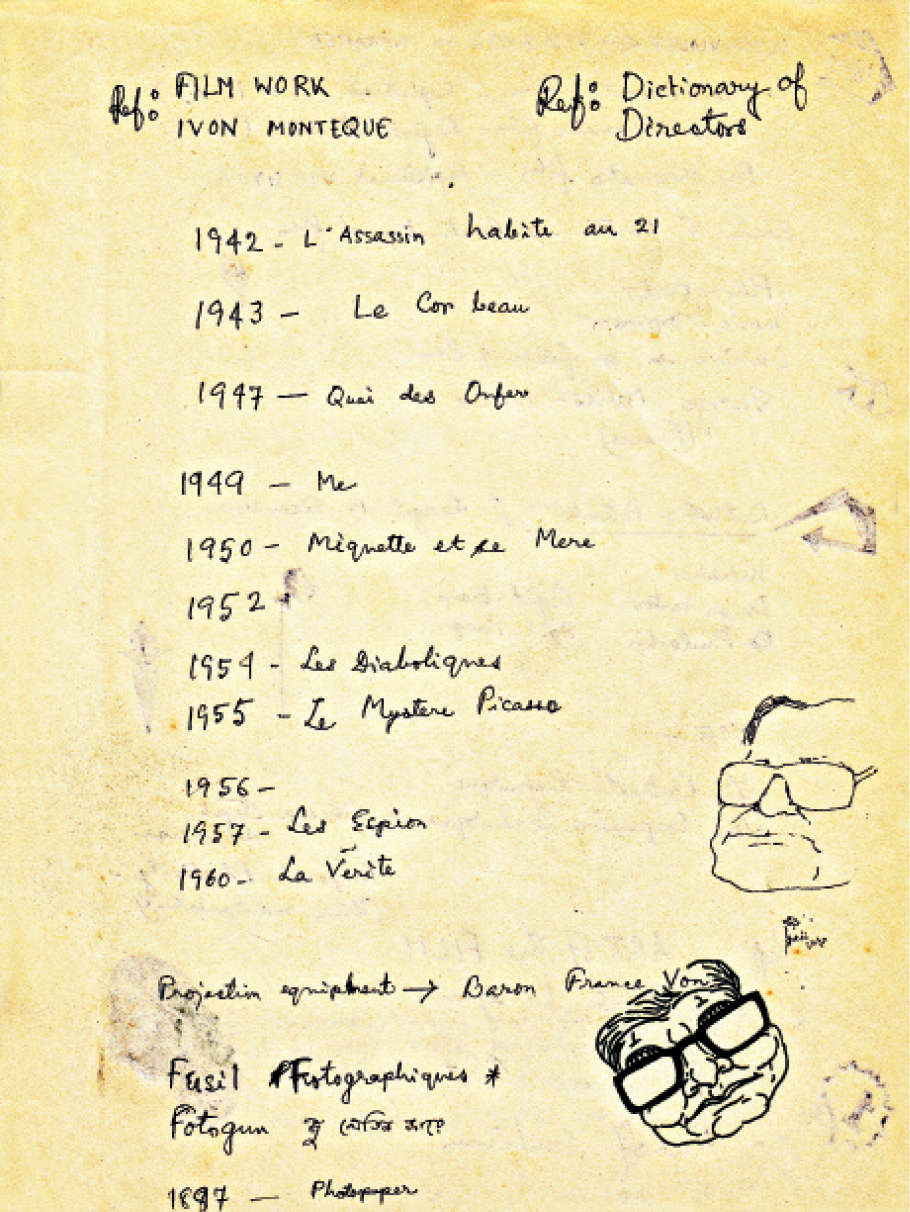 Ref: FILM WORK
IVON MONTEQUE
Ref: Dictionary of
Directors
1942 - L'Assassin habite au 21
1943 - Le Corbeau
1947 - Quai des Orfer
1949 - Me
1950 - Miquette et se Mere
1952 -
1954 - Les Diaboliques
1955 - Le Mystere Picasso
1956 -
1957 - Les Espion
1960 - La Verite
Projection equipment → Baron France Von
Fusil Fotographiques *
Fotogun
1887 - Photopaper